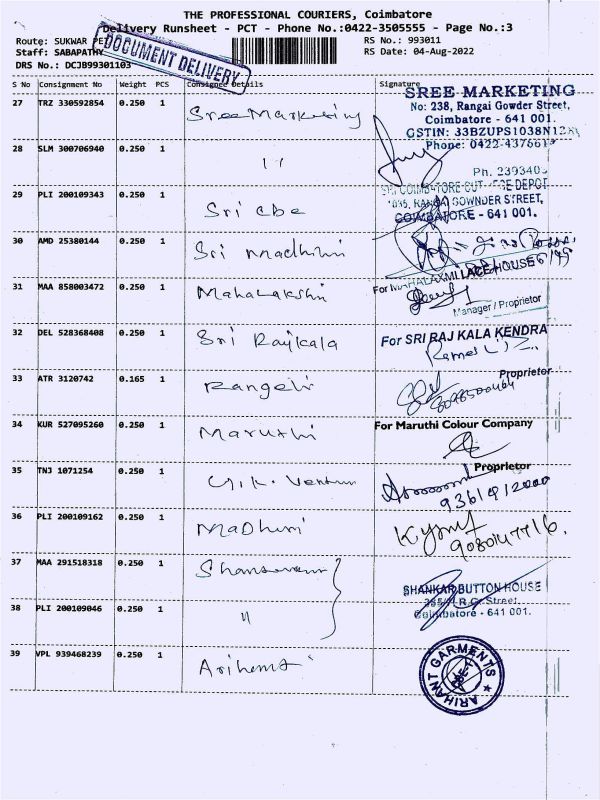 THE PROFESSIONAL COURIERS, Coimbatore
Delivery Runsheet - PCT - Phone No.:0422-3505555 - Page No.:3
Route: SUKWAR PE
RS No.: 993011
Staff: SABAPATHY
RS Date: 04-Aug-2022
DRS No.: DCJB99301103
DOCUMENT DELIVERY
S No Consignment No Weight PCS Consignee Details Signature
27 TRZ 330592854 0.250 1 Sree Marketing
SREE MARKETING
No: 238, Rangai Gowder Street,
Coimbatore - 641 001.
GSTIN: 33BZUPS1038N1
Phone: 0422-437661
28 SLM 300706940 0.250 1 "
Ph. 239340
29 PLI 200109343 0.250 1 Sri cbe
SRI COIMBATORE CUT PIECE DEPOT
GOWNDER STREET,
COIMBATORE - 641 001.
30 AMD 25380144 0.250 1 Sri Madhini
31 MAA 858003472 0.250 1 Mahalakshi
For MAHALAXMI LACE HOUSE
Manager / Proprietor
32 DEL 528368408 0.250 1 Sri Rajkala
For SRI RAJ KALA KENDRA
Proprietor
33 ATR 3120742 0.165 1
34 KUR 527095260 0.250 1 Maruthi
For Maruthi Colour Company
Proprietor
35 TNJ 1071254 0.250 1
36 PLI 200109162 0.250 1 Madhini
9080147716.
37 MAA 291518318 0.250 1
SHANKAR BUTTON HOUSE
R.G. Street,
Coimbatore - 641 001.
38 PLI 200109046 0.250 1 "
39 VPL 939468239 0.250 1 Arihant
ARIHANT GARMENTS